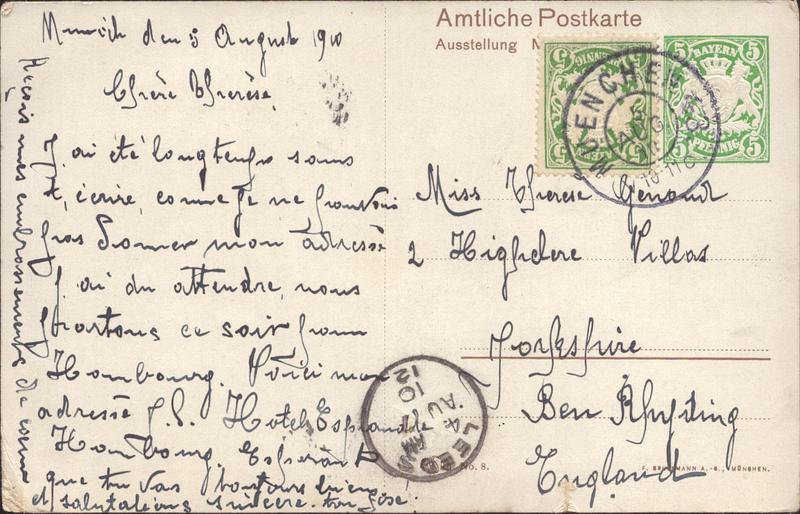 Amtliche Postkarte
Ausstellung M
Munich den 5 August 1910
Chère Therèse,
J, ai été longtemps sans
t, écrire, comme je ne pouvais
pas Donner mon adresse
J, ai du attendre, nous
partons ce soir pour
Hambourg. Voici mon
adresse J.S. Hotel Esplanade
Hambourg. Esperant
que tu vas toujours bien
et salutations sincere. ton José.
Recois mes embrassements de coeur
BAYERN
5 5
PFENNIG
MUENCHEN
5 AUG 10
10-11
Miss Therese Genoud
2 Highdere Villas
Yorkshire
Ben Rhyding
England
LEEDS
4 AM
AU 7
10
12
No. 8.
F. BRUCKMANN A.-G., MÜNCHEN.